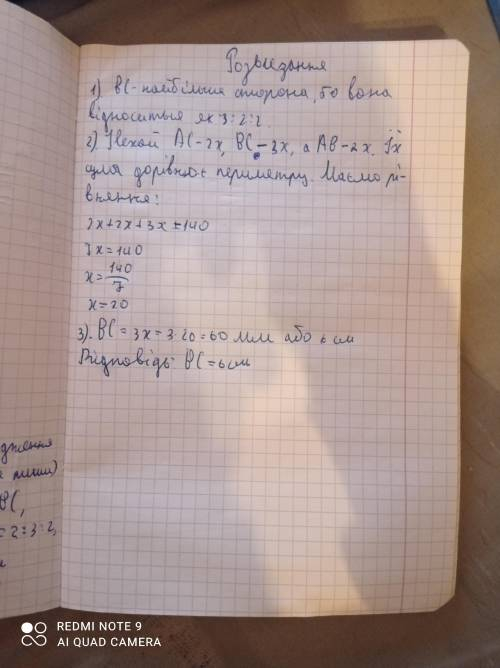 Розв'язання
1) BC - найбільша сторона, бо вона
відноситься як 3:2:2.
2) Нехай AC - 2x, BC - 3x, а AB - 2x. Їх
сума дорівнює периметру. Маємо рі-
вняння:
2x+2x+3x=140
7x=140
x=140/7
x=20
3). BC = 3x = 3·20 = 60 мм або 6 см
Відповідь: BC = 6 см
дження
BC,
= 2:3:2,
REDMI NOTE 9
AI QUAD CAMERA